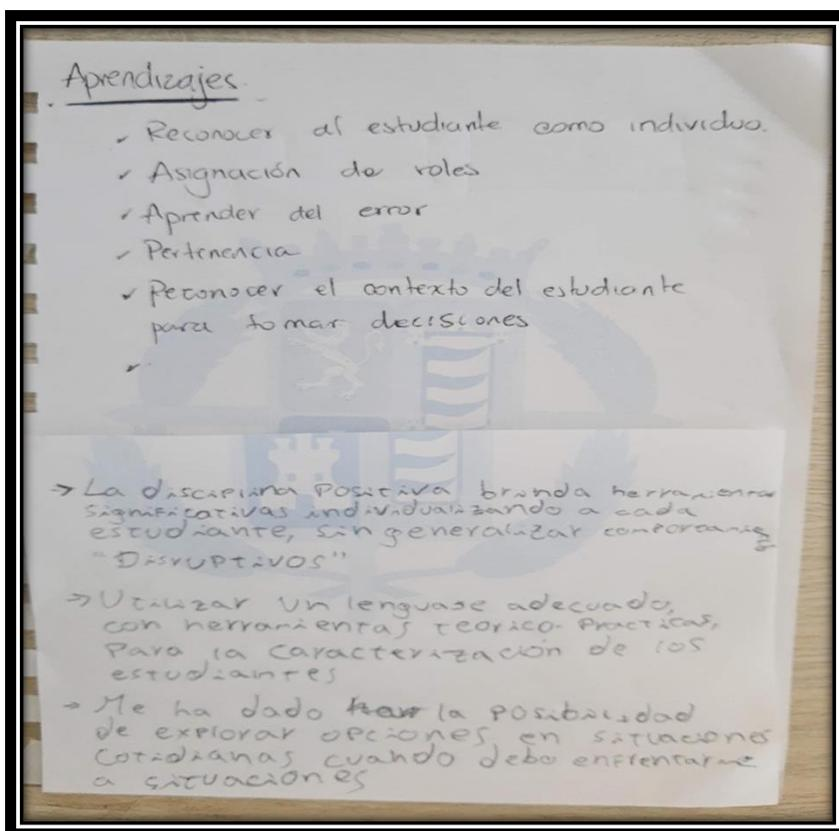 Aprendizajes.
✓ Reconocer al estudiante como individuo.
✓ Asignación de roles
✓ Aprender del error
✓ Pertenencia
✓ Reconocer el contexto del estudiante
para tomar decisiones
✓
→ La disciplina Positiva brinda herramientas
significativas individualizando a cada
estudiante, sin generalizar
"Disruptivos"
→ Utilizar un lenguaje adecuado,
con herramientas teorico-practicas,
Para la caracterización de los
estudiantes
→ Me ha dado la posibilidad
de explorar opciones en situaciones
cotidianas cuando debo enfrentarme
a situaciones